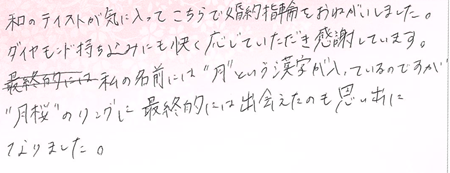 和のテイストが気に入ってこちらで婚約指輪をおねがいしました。
ダイヤモンド持ち込みにも快く応じていただき感謝しています。
最終的には私の名前には"月"という漢字が入っているのですが
"月桜"のリングに最終的には出会えたのも思い出に
なりました。